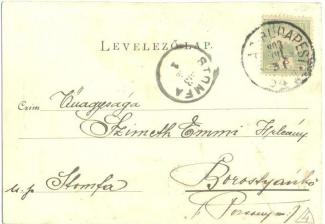 LEVELEZŐ-LAP.
BUDAPEST
STOMFA
Czim Őnagysága
Szimeth Emmi
u. p. Stomfa
Borostyánkő
(Pozsony m.)